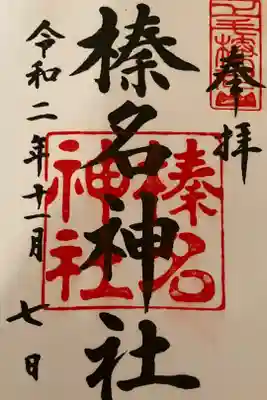 奉拝
榛名神社
令和二年十一月七日
榛名
神社